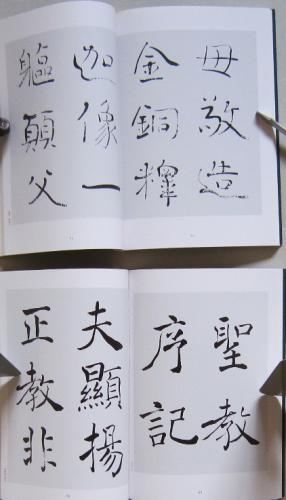 母敬造
金銅釋
迦像一
軀願父
聖教
序記
夫顯揚
正教非